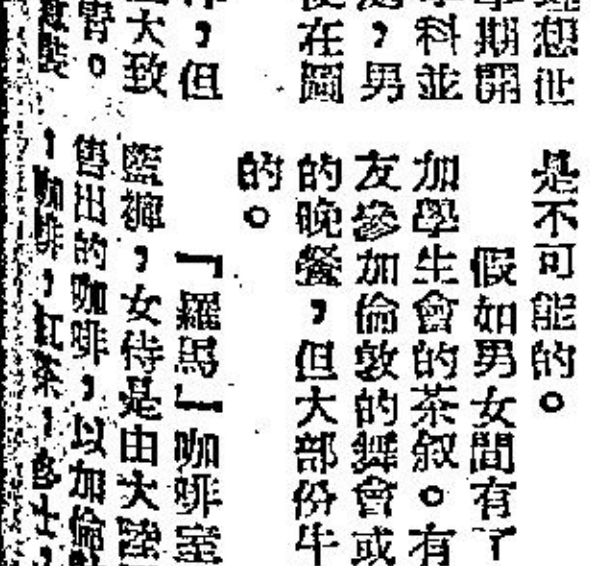 想世
學期開
科並
，男
在圖
，但
大致
。
是不可能的。
假如男女間有了
加學生會的茶叙。有
友參加倫敦的舞會或
的晚餐，但大部份牛
的。
「羅馬」咖啡室
藍褲，女侍是由大陸
售出的咖啡，以加倫
，咖啡，紅茶，